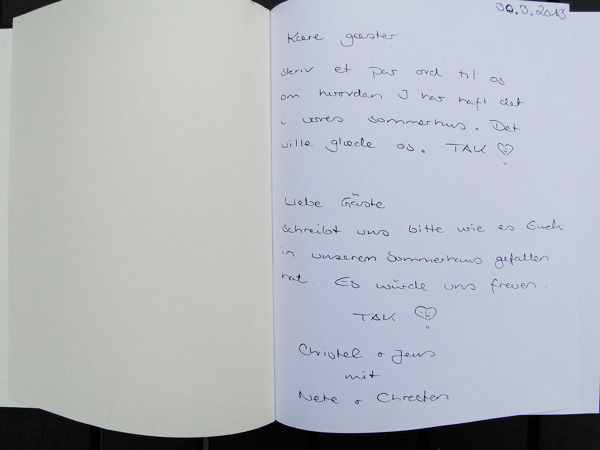 30.3.2013
Kære gæster
skriv et par ord til os
om hvordan I har haft det
i vores sommerhus. Det
ville glæde os. TAK
Liebe Gäste
schreibt uns bitte wie es Euch
in unserem Sommerhaus gefallen
hat. Es würde uns freuen.
TAK
Christel + Jens
mit
Nete + Chresten